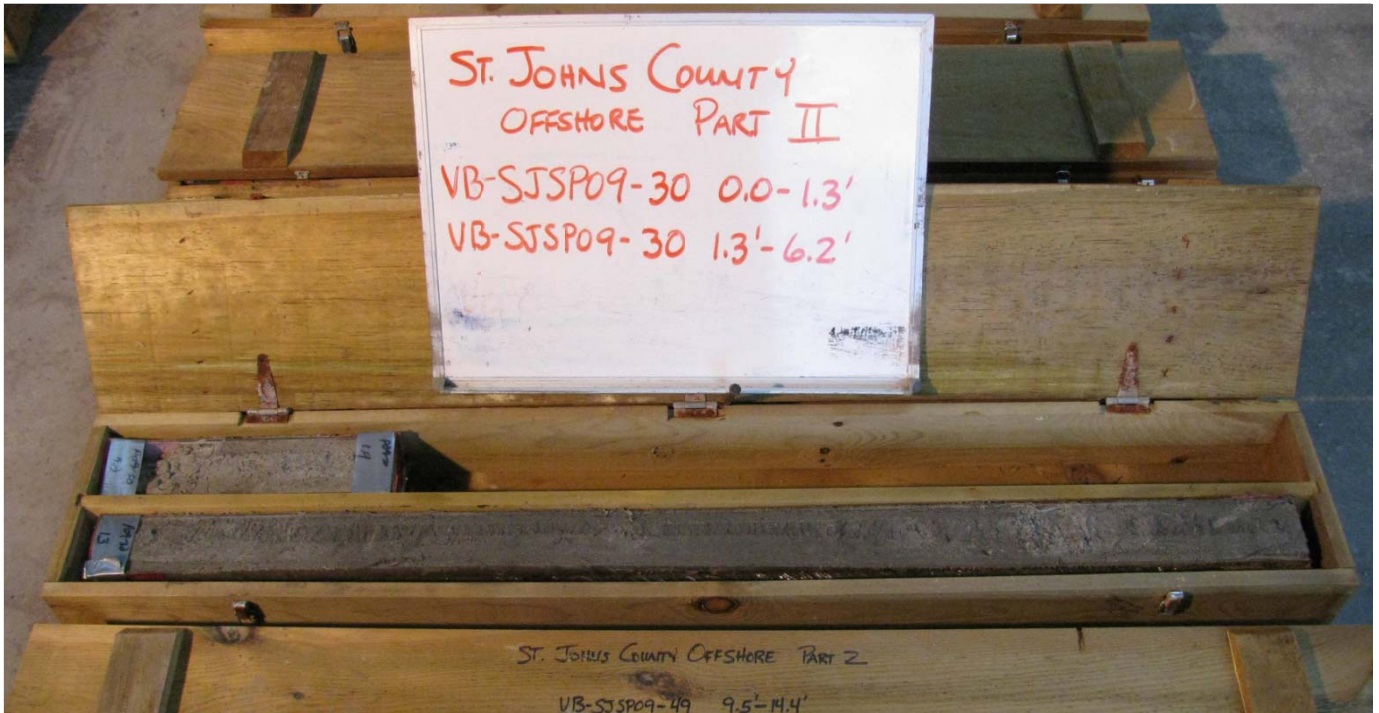 ST. JOHNS COUNTY
OFFSHORE PART II
VB-SJSP09-30 0.0-1.3'
VB-SJSP09-30 1.3'-6.2'
1.3
ST. JOHNS COUNTY OFFSHORE PART 2
VB-SJSP09-49 9.5'-14.4'